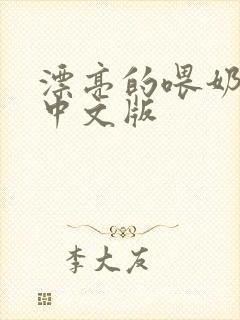 漂亮的喂奶
中文版
李大友